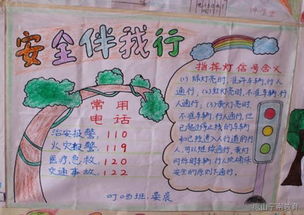 安全伴我行
常用
电话
治安报警 110
火灾报警 119
医疗急救 120
交通事故 122
叮当班:
指挥灯信号含义
(1)绿灯亮时,准许车辆,行人
通行,(2)红灯亮时,不准车辆,行
人通行,(3)黄灯亮时,
不准车辆,行人通行,但
已越过停止线的车辆
和已经进入人行道的行
人,可以继续通行,黄灯
闪烁时车辆,行人须确保
安全的原则下通行。